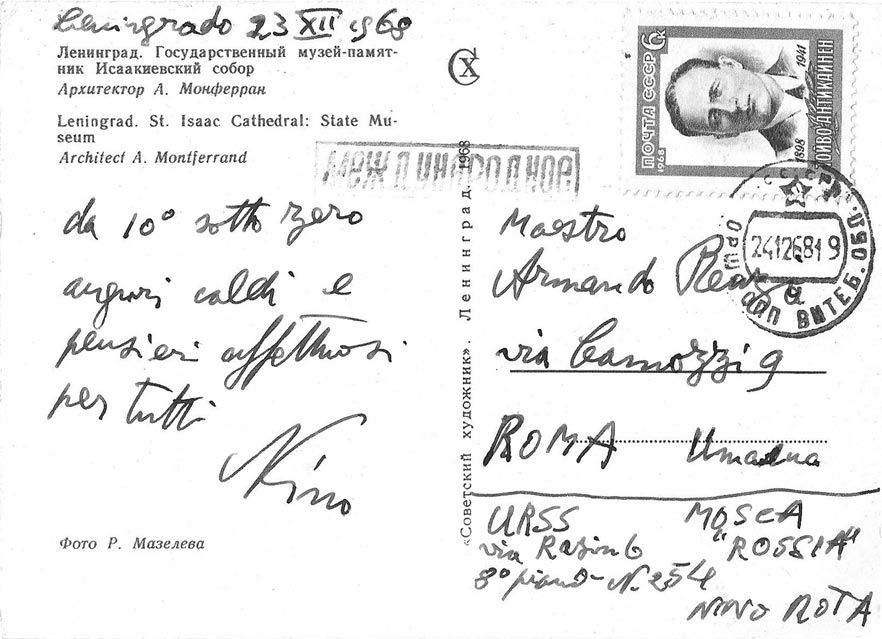 Leningrado 23 XII 1968
Ленинград. Государственный музей-памят-
ник Исаакиевский собор
Архитектор А. Монферран
Leningrad. St. Isaac Cathedral: State Mu-
seum
Architect A. Montferrand
МЕЖДУНАРОДНОЕ
da 10° sotto zero
auguri caldi e
pensieri affettuosi
per tutti
Nino
Фото Р. Мазелева
«Советский художник». Ленинград. 1968
СХ
ПОЧТА СССР 6к
1968
1898 1941
ТОЙВО АНТИКАЙНЕН
СССР
24126819
ВИТЕБ. ОБЛ.
Maestro
Armando
via Camozzi 9
ROMA
URSS MOSCA
via Razin 6 "ROSSIA"
8° piano - N. 254
NINO ROTA